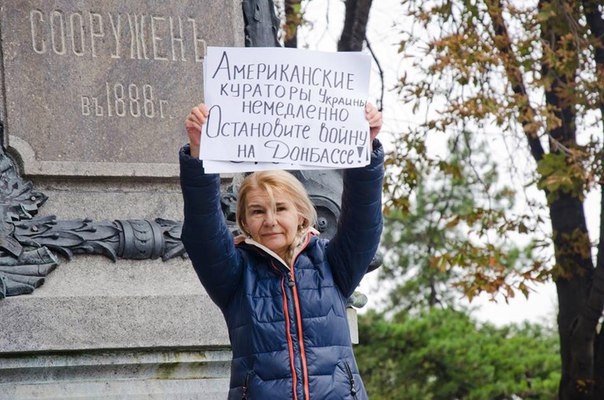 СООРУЖЕНЪ
въ 1888г
АМЕРИКАНСКИЕ
КУРАТОРЫ УКРАИНЫ
НЕМЕДЛЕННО
ОСТАНОВИТЕ ВОЙНУ
НА ДОНБАССЕ!